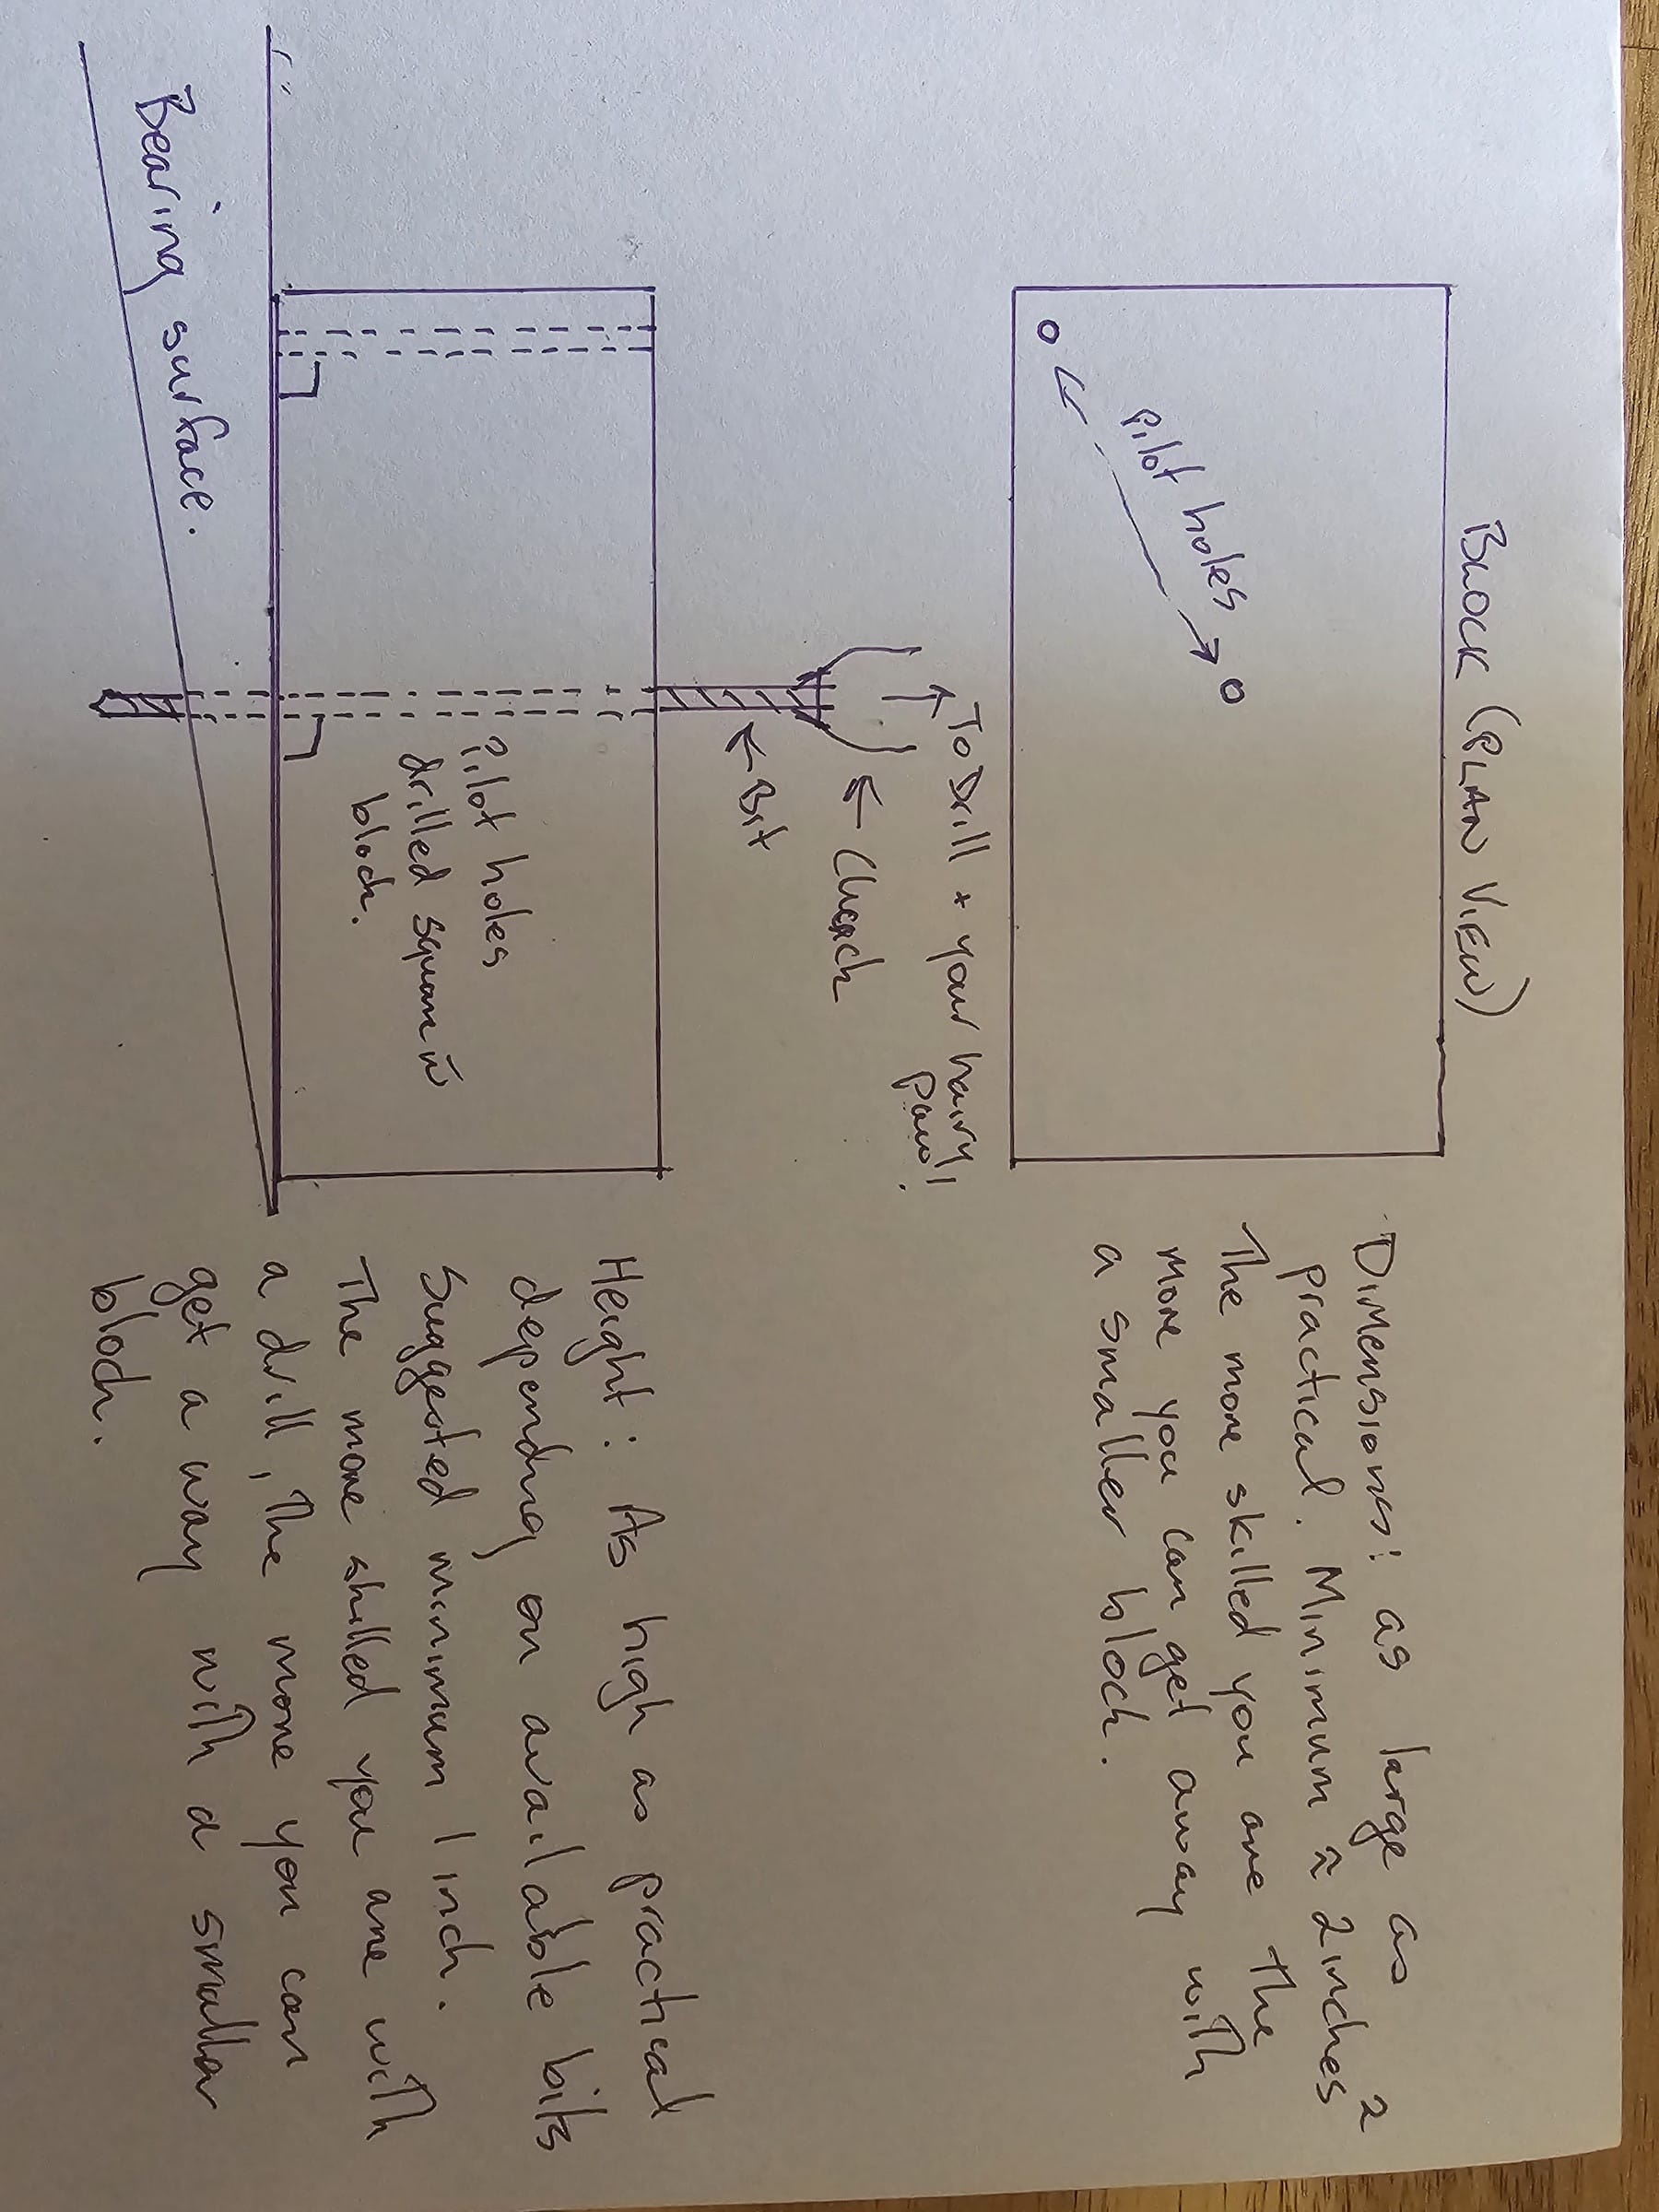 BLOCK (PLAN VIEW)
Pilot holes
Dimensions: as large as
practical. Minimum ≈ 2inches²
The more skilled you are the
more you can get away with
a smaller block.
To Drill + your hairy
paw!
← Chuck
← Bit
Pilot holes
drilled square in
block.
Bearing surface.
Height: As high as practical
depending on available bits
Suggested minimum 1 inch.
The more skilled you are with
a drill, the more you can
get a way with a smaller
block.